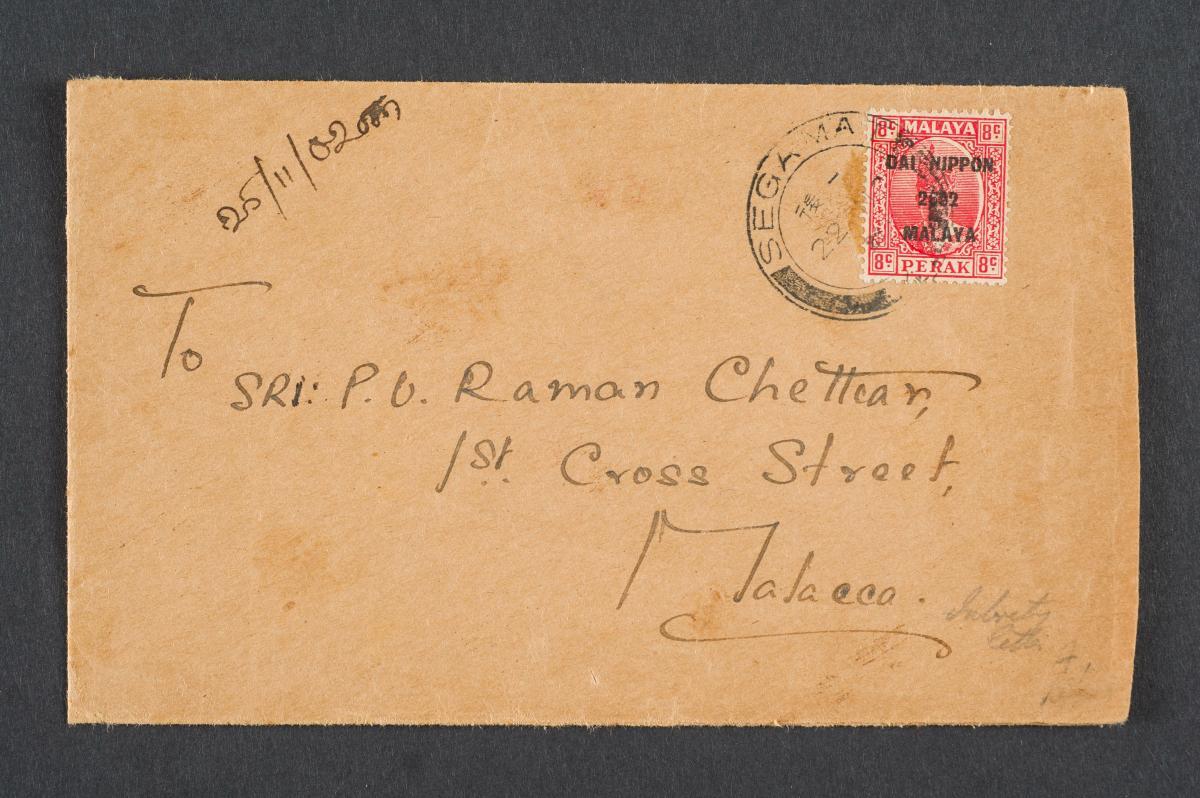 SEGAMAT
8c MALAYA 8c
DAI NIPPON
2602
MALAYA
8c PERAK 8c
To
SRI: P.U. Raman Chettiar,
1st. Cross Street,
Malacca.